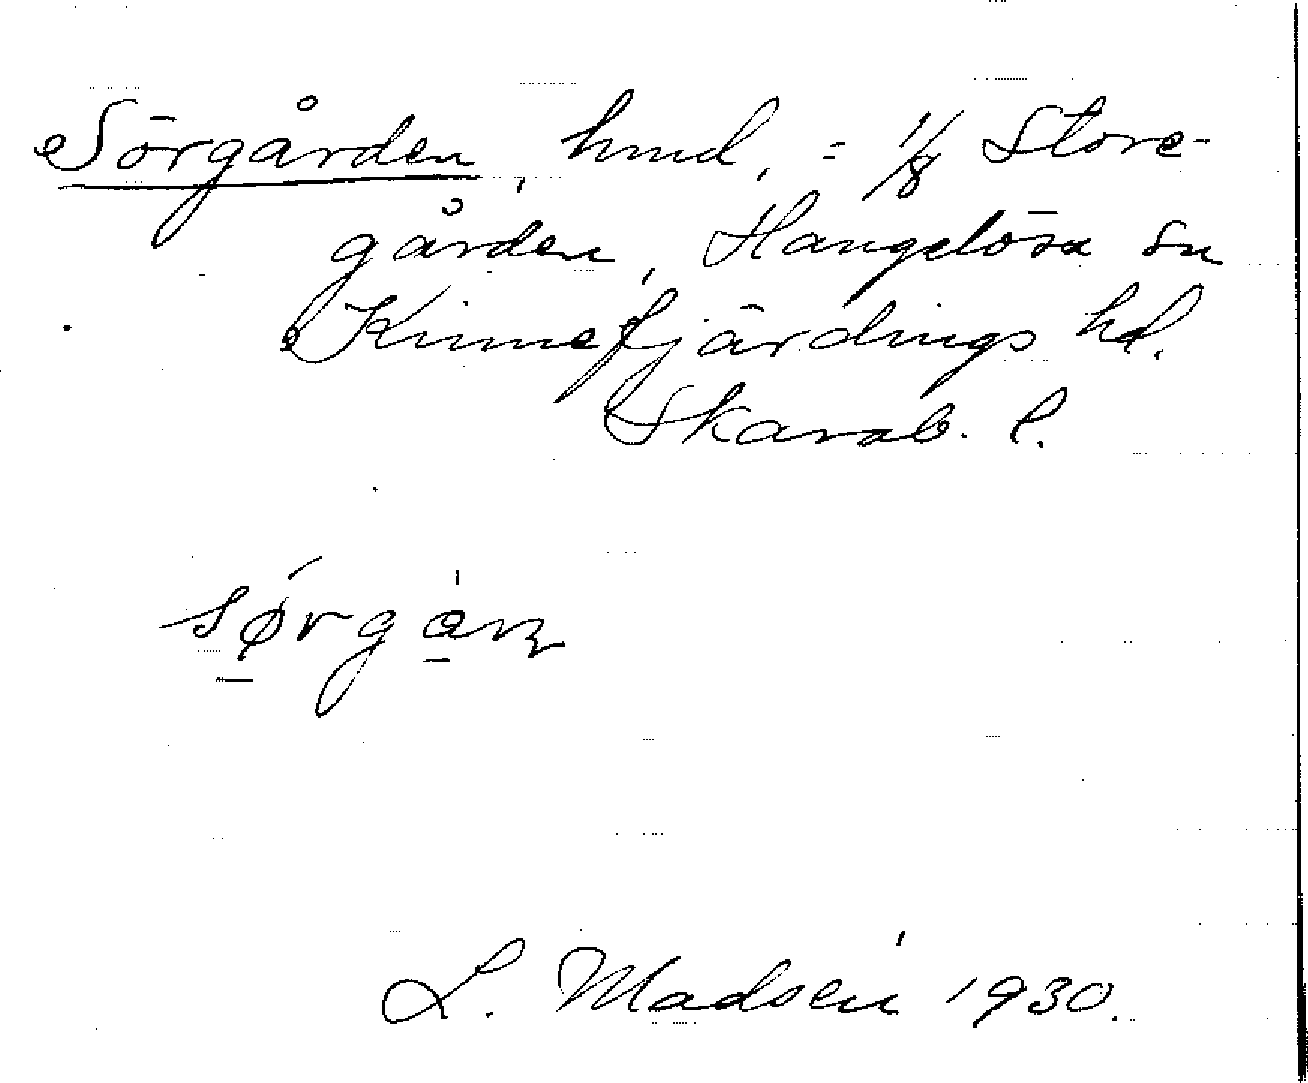 Sörgården, hmd, = 1/8 Store-
gården, Hangelösa sn
Kinnefjärdings hd.
Skarab. l.
L. Madsén 1930.